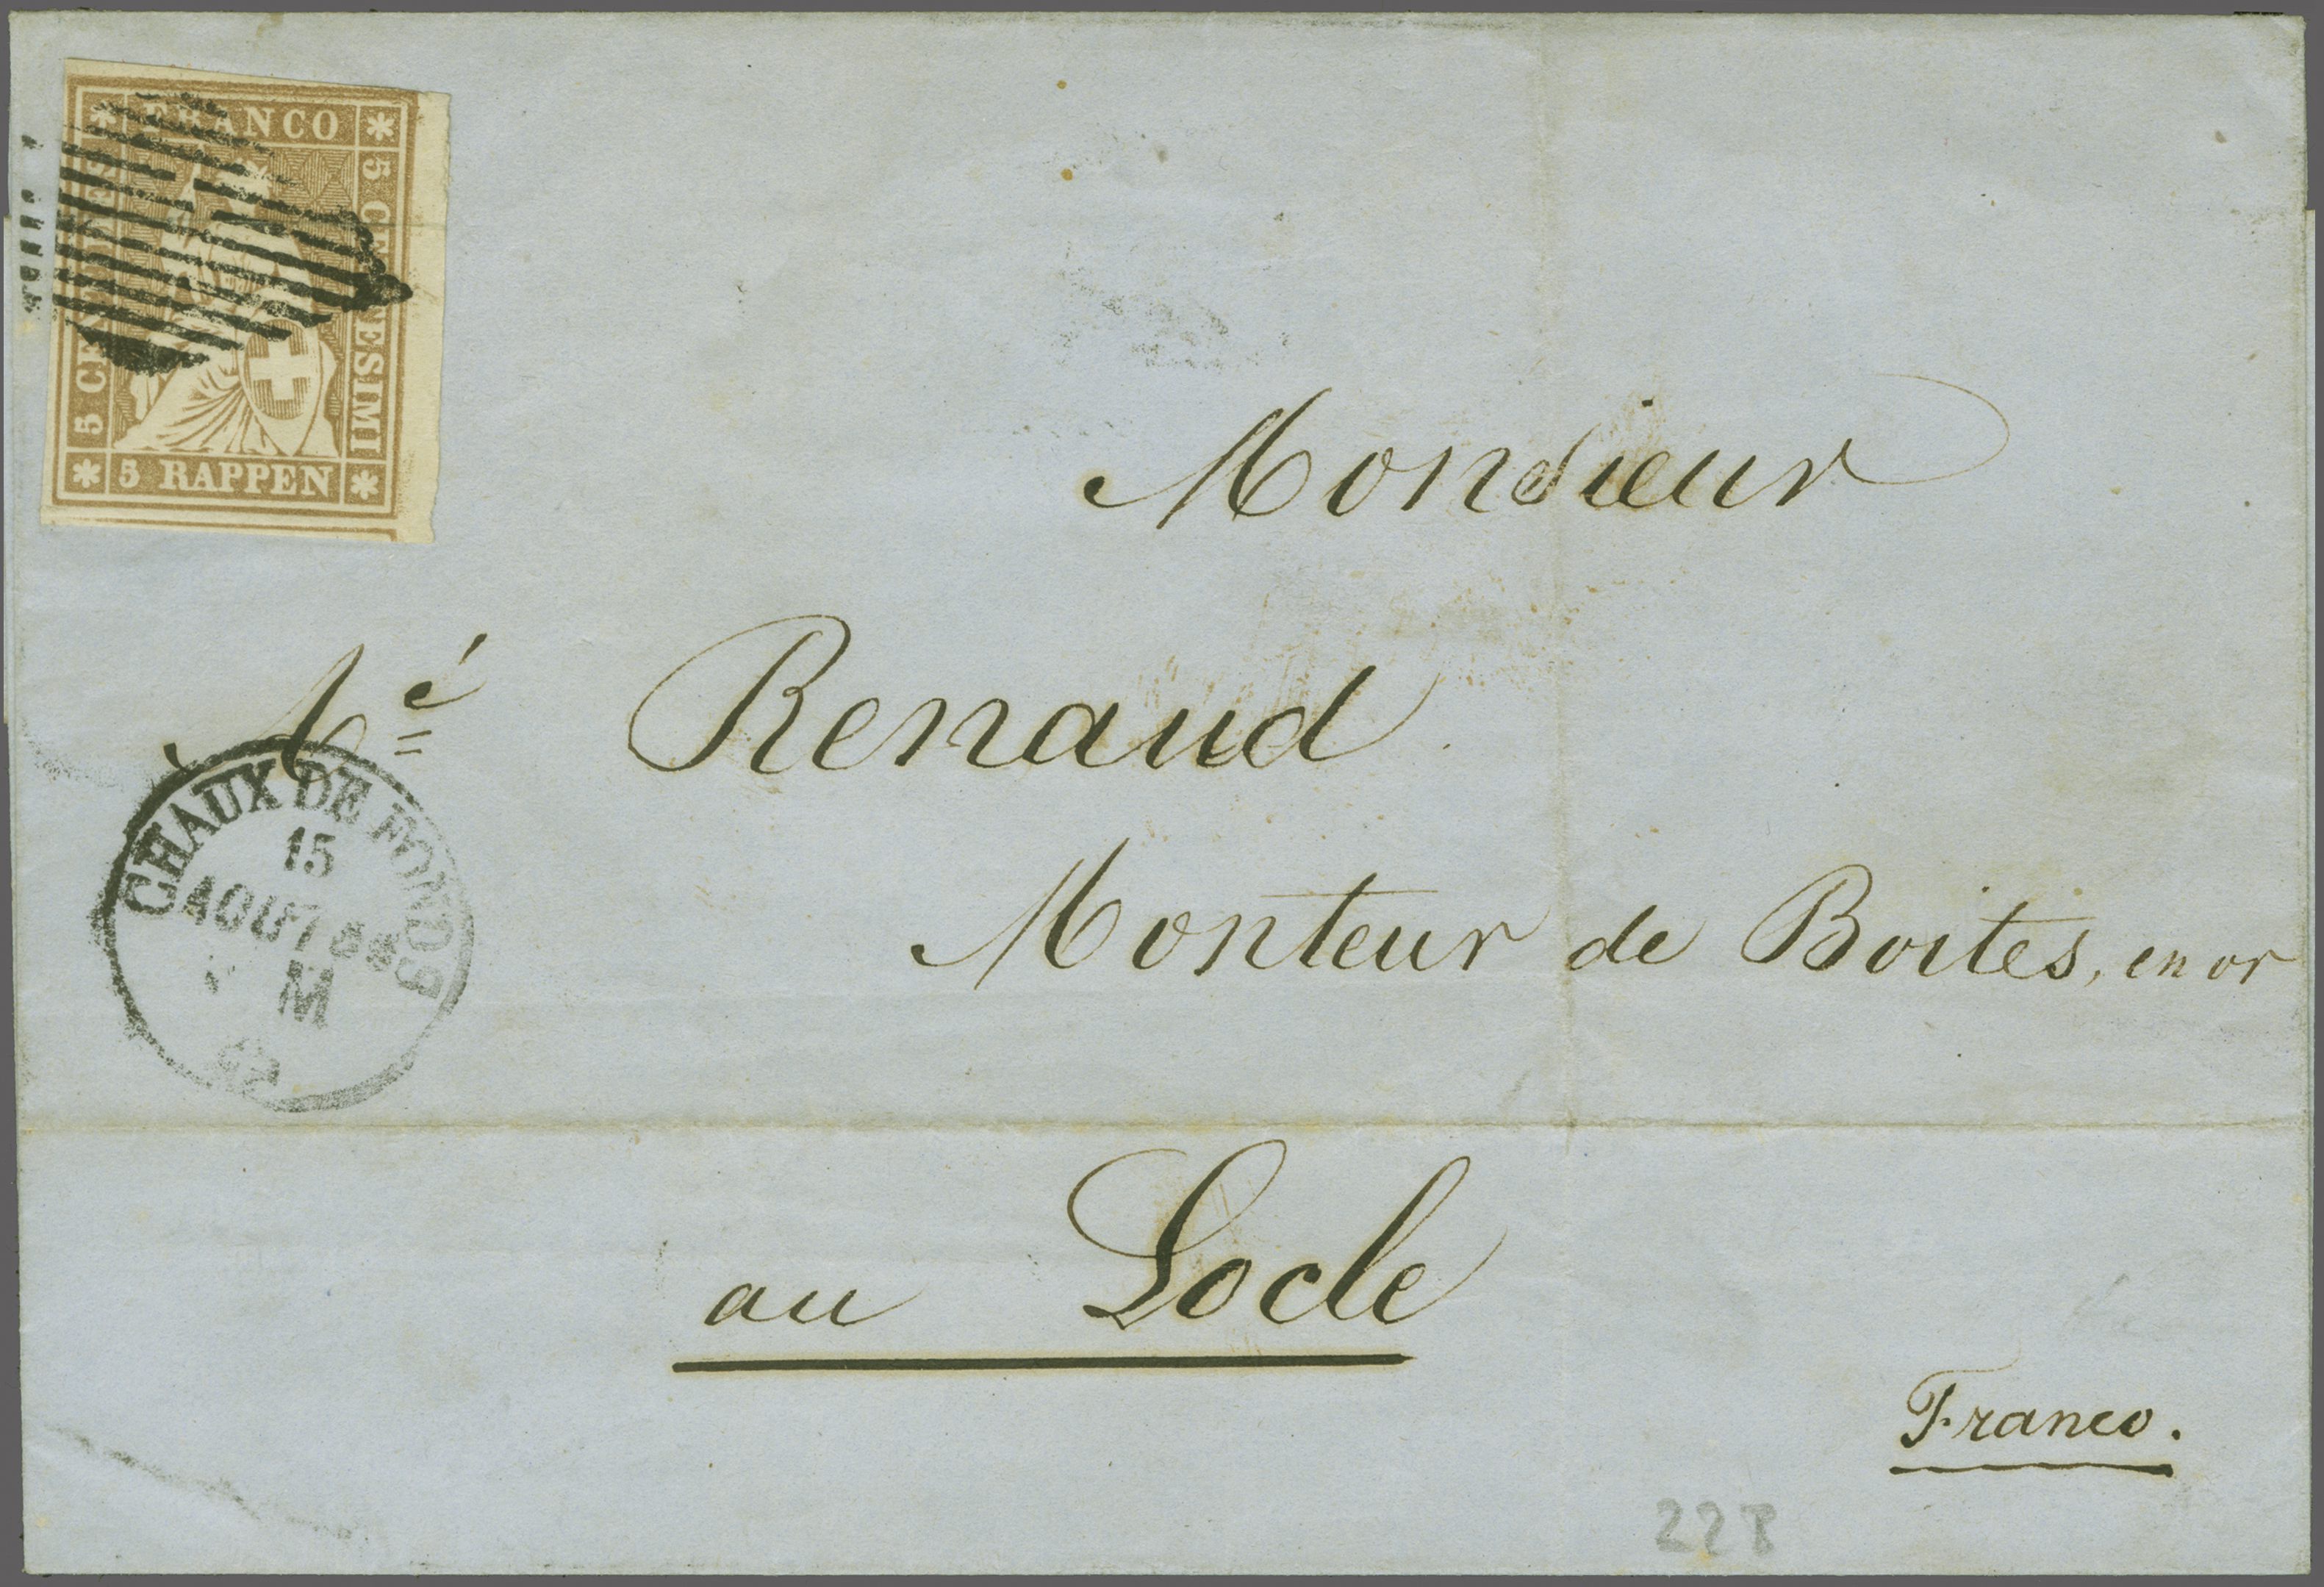 FRANCO
5 CENTESIMI
5 RAPPEN
Monsieur
Renaud
CHAUX DE FONDS
15
AOUT
M
Monteur de Boites, en or
au Locle
Franco.
228